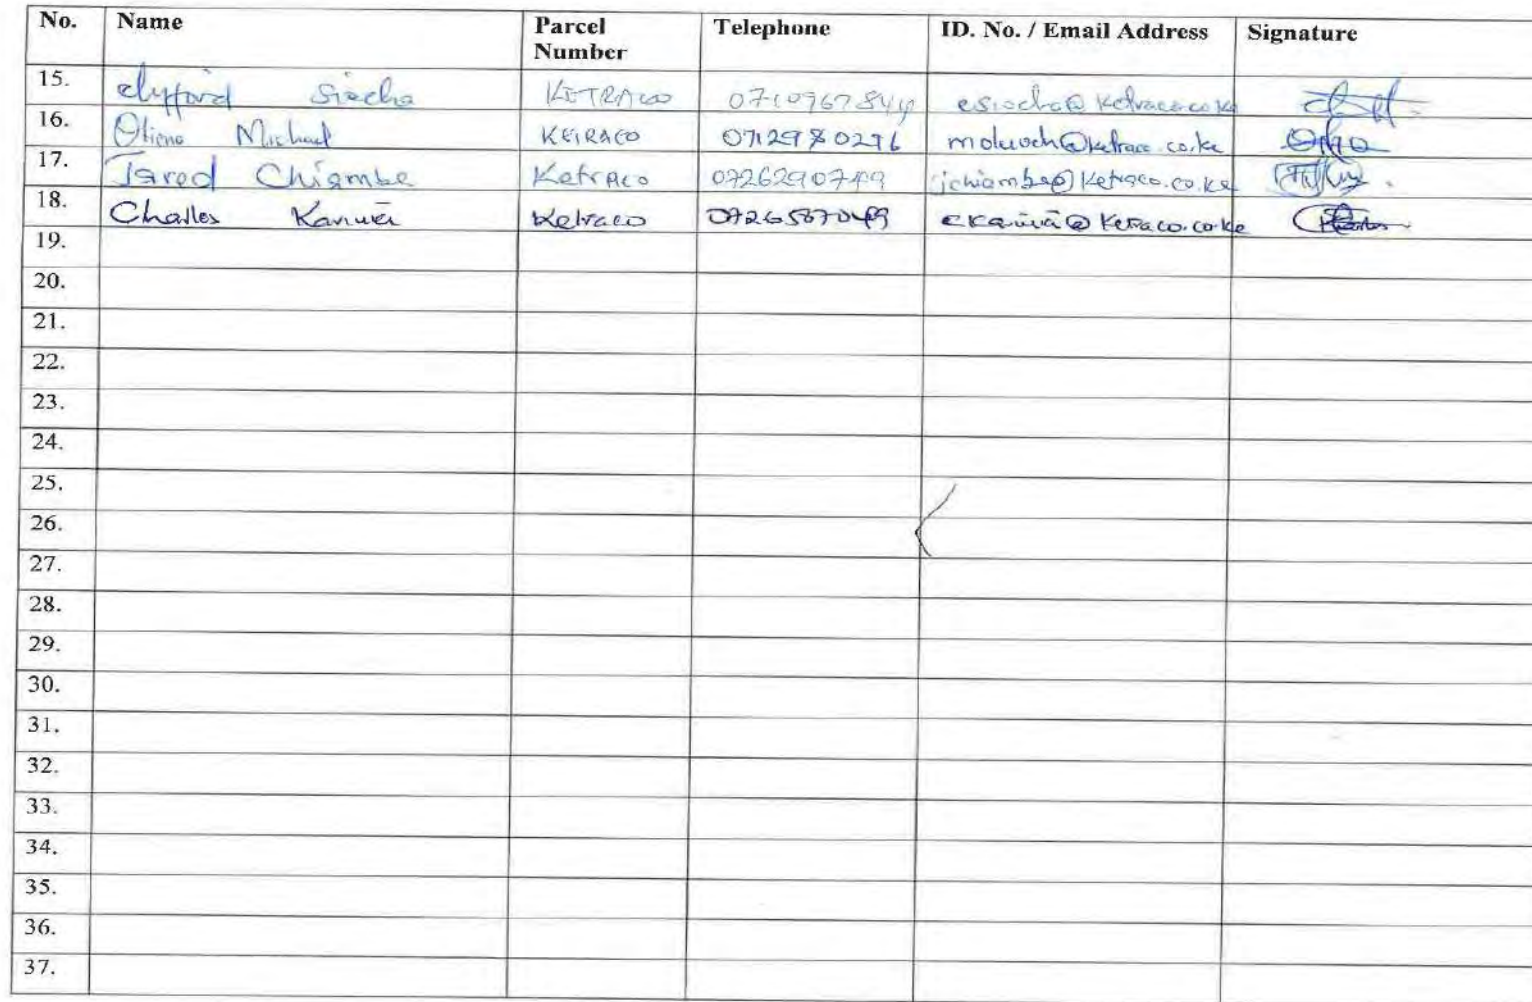 No. Name Parcel Number Telephone ID. No. / Email Address Signature
15. Clyfford Siocha KETRACO 0710967844 esiocha@ketraco.co.ke
16. Otieno Michael KETRACO 0712980296 moluoch@ketraco.co.ke
17. Jared Chiambe Ketraco 0726290749 jchiambe@ketraco.co.ke
18. Charles Ketraco
19.
20.
21.
22.
23.
24.
25.
26.
27.
28.
29.
30.
31.
32.
33.
34.
35.
36.
37.